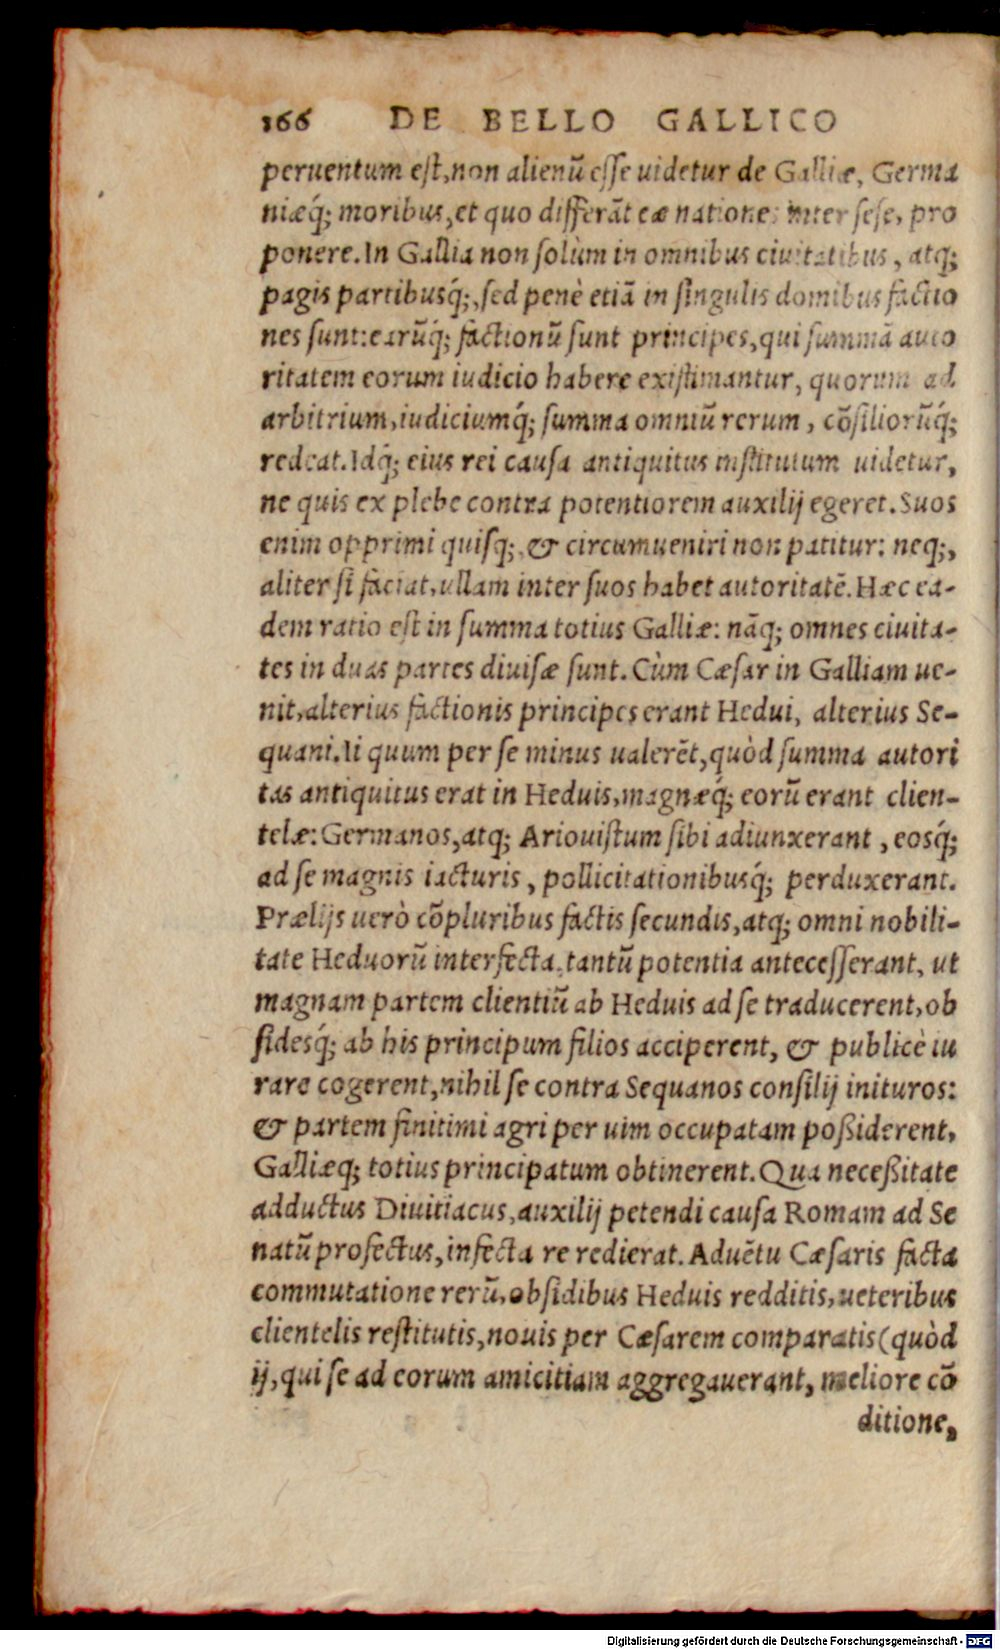 166 DE BELLO GALLICO
peruentum eſt, non alienũ eſſe uidetur de Galliæ, Germa
niæq́; moribus, et quo differãt eæ natione: inter ſeſe, pro
ponere. In Gallia non ſolùm in omnibus ciuitatibus, atq;
pagis partibusq́;, ſed penè etiã in ſingulis domibus factio
nes ſunt: earũq́; factionũ ſunt principes, qui ſummã auto
ritatem eorum iudicio habere exiſtimantur, quorum ad
arbitrium, iudiciumq́; ſumma omniũ rerum, cõſiliorũq́;
redeat. Idq́; eius rei cauſa antiquitus inſtitutum uidetur,
ne quis ex plebe contra potentiorem auxilij egeret. Suos
enim opprimi quiſq;, & circumueniri non patitur: neq;,
aliter ſi faciat, ullam inter ſuos habet autoritatẽ. Hæc ea-
dem ratio eſt in ſumma totius Galliæ: nãq; omnes ciuita-
tes in duas partes diuiſæ ſunt. Cùm Cæſar in Galliam ue-
nit, alterius factionis principes erant Hedui, alterius Se-
quani. Ii quum per ſe minus ualerẽt, quòd ſumma autori
tas antiquitus erat in Heduis, magnæq́; eorũ erant clien-
telæ: Germanos, atq; Ariouiſtum ſibi adiunxerant, eosq́;
ad ſe magnis iacturis, pollicitationibusq́; perduxerant.
Prælijs uerò cõpluribus factis ſecundis, atq; omni nobili-
tate Heduorũ interfecta, tantũ potentia anteceſſerant, ut
magnam partem clientiũ ab Heduis ad ſe traducerent, ob
ſidesq́; ab his principum filios acciperent, & publicè iu
rare cogerent, nihil ſe contra Sequanos conſilij inituros:
& partem finitimi agri per uim occupatam poßiderent,
Galliæq; totius principatum obtinerent. Qua neceßitate
adductus Diuitiacus, auxilij petendi cauſa Romam ad Se
natũ profectus, infecta re redierat. Aduẽtu Cæſaris facta
commutatione rerũ, obſidibus Heduis redditis, ueteribus
clientelis reſtitutis, nouis per Cæſarem comparatis (quòd
ij, qui ſe ad eorum amicitiam aggregauerant, meliore cõ
ditione,
Digitalisierung gefördert durch die Deutsche Forschungsgemeinschaft - DFG